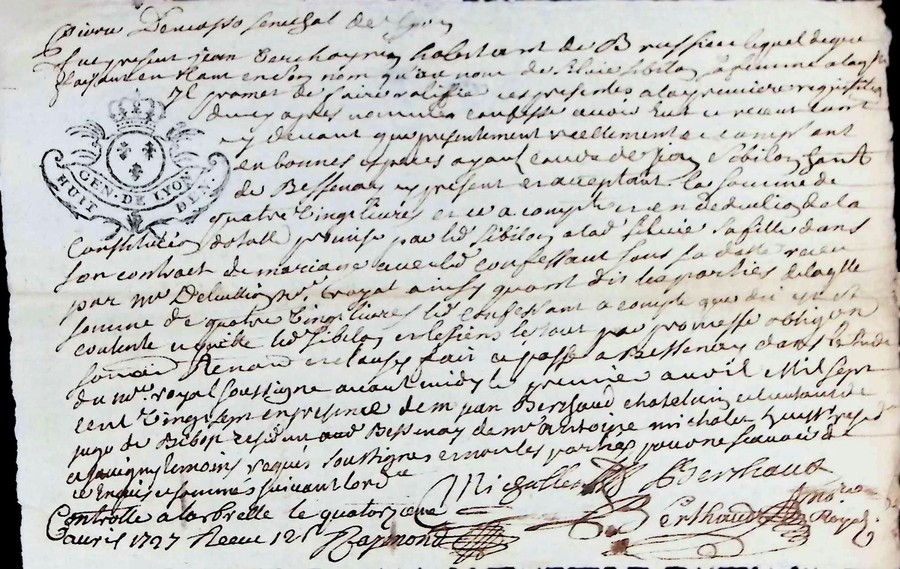 senechal de Lyon
fut present jean habitant de Brussieu lequel de gre
faisant en tant en son nom qu'au nom de sa femme a laq
Il promet de faire ratifier ces presentes a la premiere requisition
du cy apres nomme confesse avoir eut et receut tant
cy devant que presentement reellement et comptant
GEN. DE LYON
HUIT DEN.
en bonnes especes ayant cours de Sibilon
de Bessenay cy present et acceptant la somme de
quatre vingt livres et ce a compte et en deduction de la
Constitution dotalle promise par led Sibilon a lad sa fille dans
son contract de mariage avec led confessant sous sa datte receu
par Me Royal ainsy quont dit les parties de laq
somme de quatre vingt livres led confessant a compte que dit est
contente et quitte led Sibilon et les siens le tout par promesse oblig
Renon et clauses fait et passé a Bessenay dans letude
du Me royal soussigné avant midy le premier avril Mil sept
cent vingt sept en presence de m jean Berthaud chatelain et
juge de Bibost resident aud Bessenay de me Antoine Michalet
a Savigny temoins requis soussignes et non les parties pour ne scavoir de
ce Enquis et sommés suivant lord
Michallet Berthaud
Controllé a larbrelle le quatorzieme Berthaud Royal
avril 1727 Receu 12 s Raymond